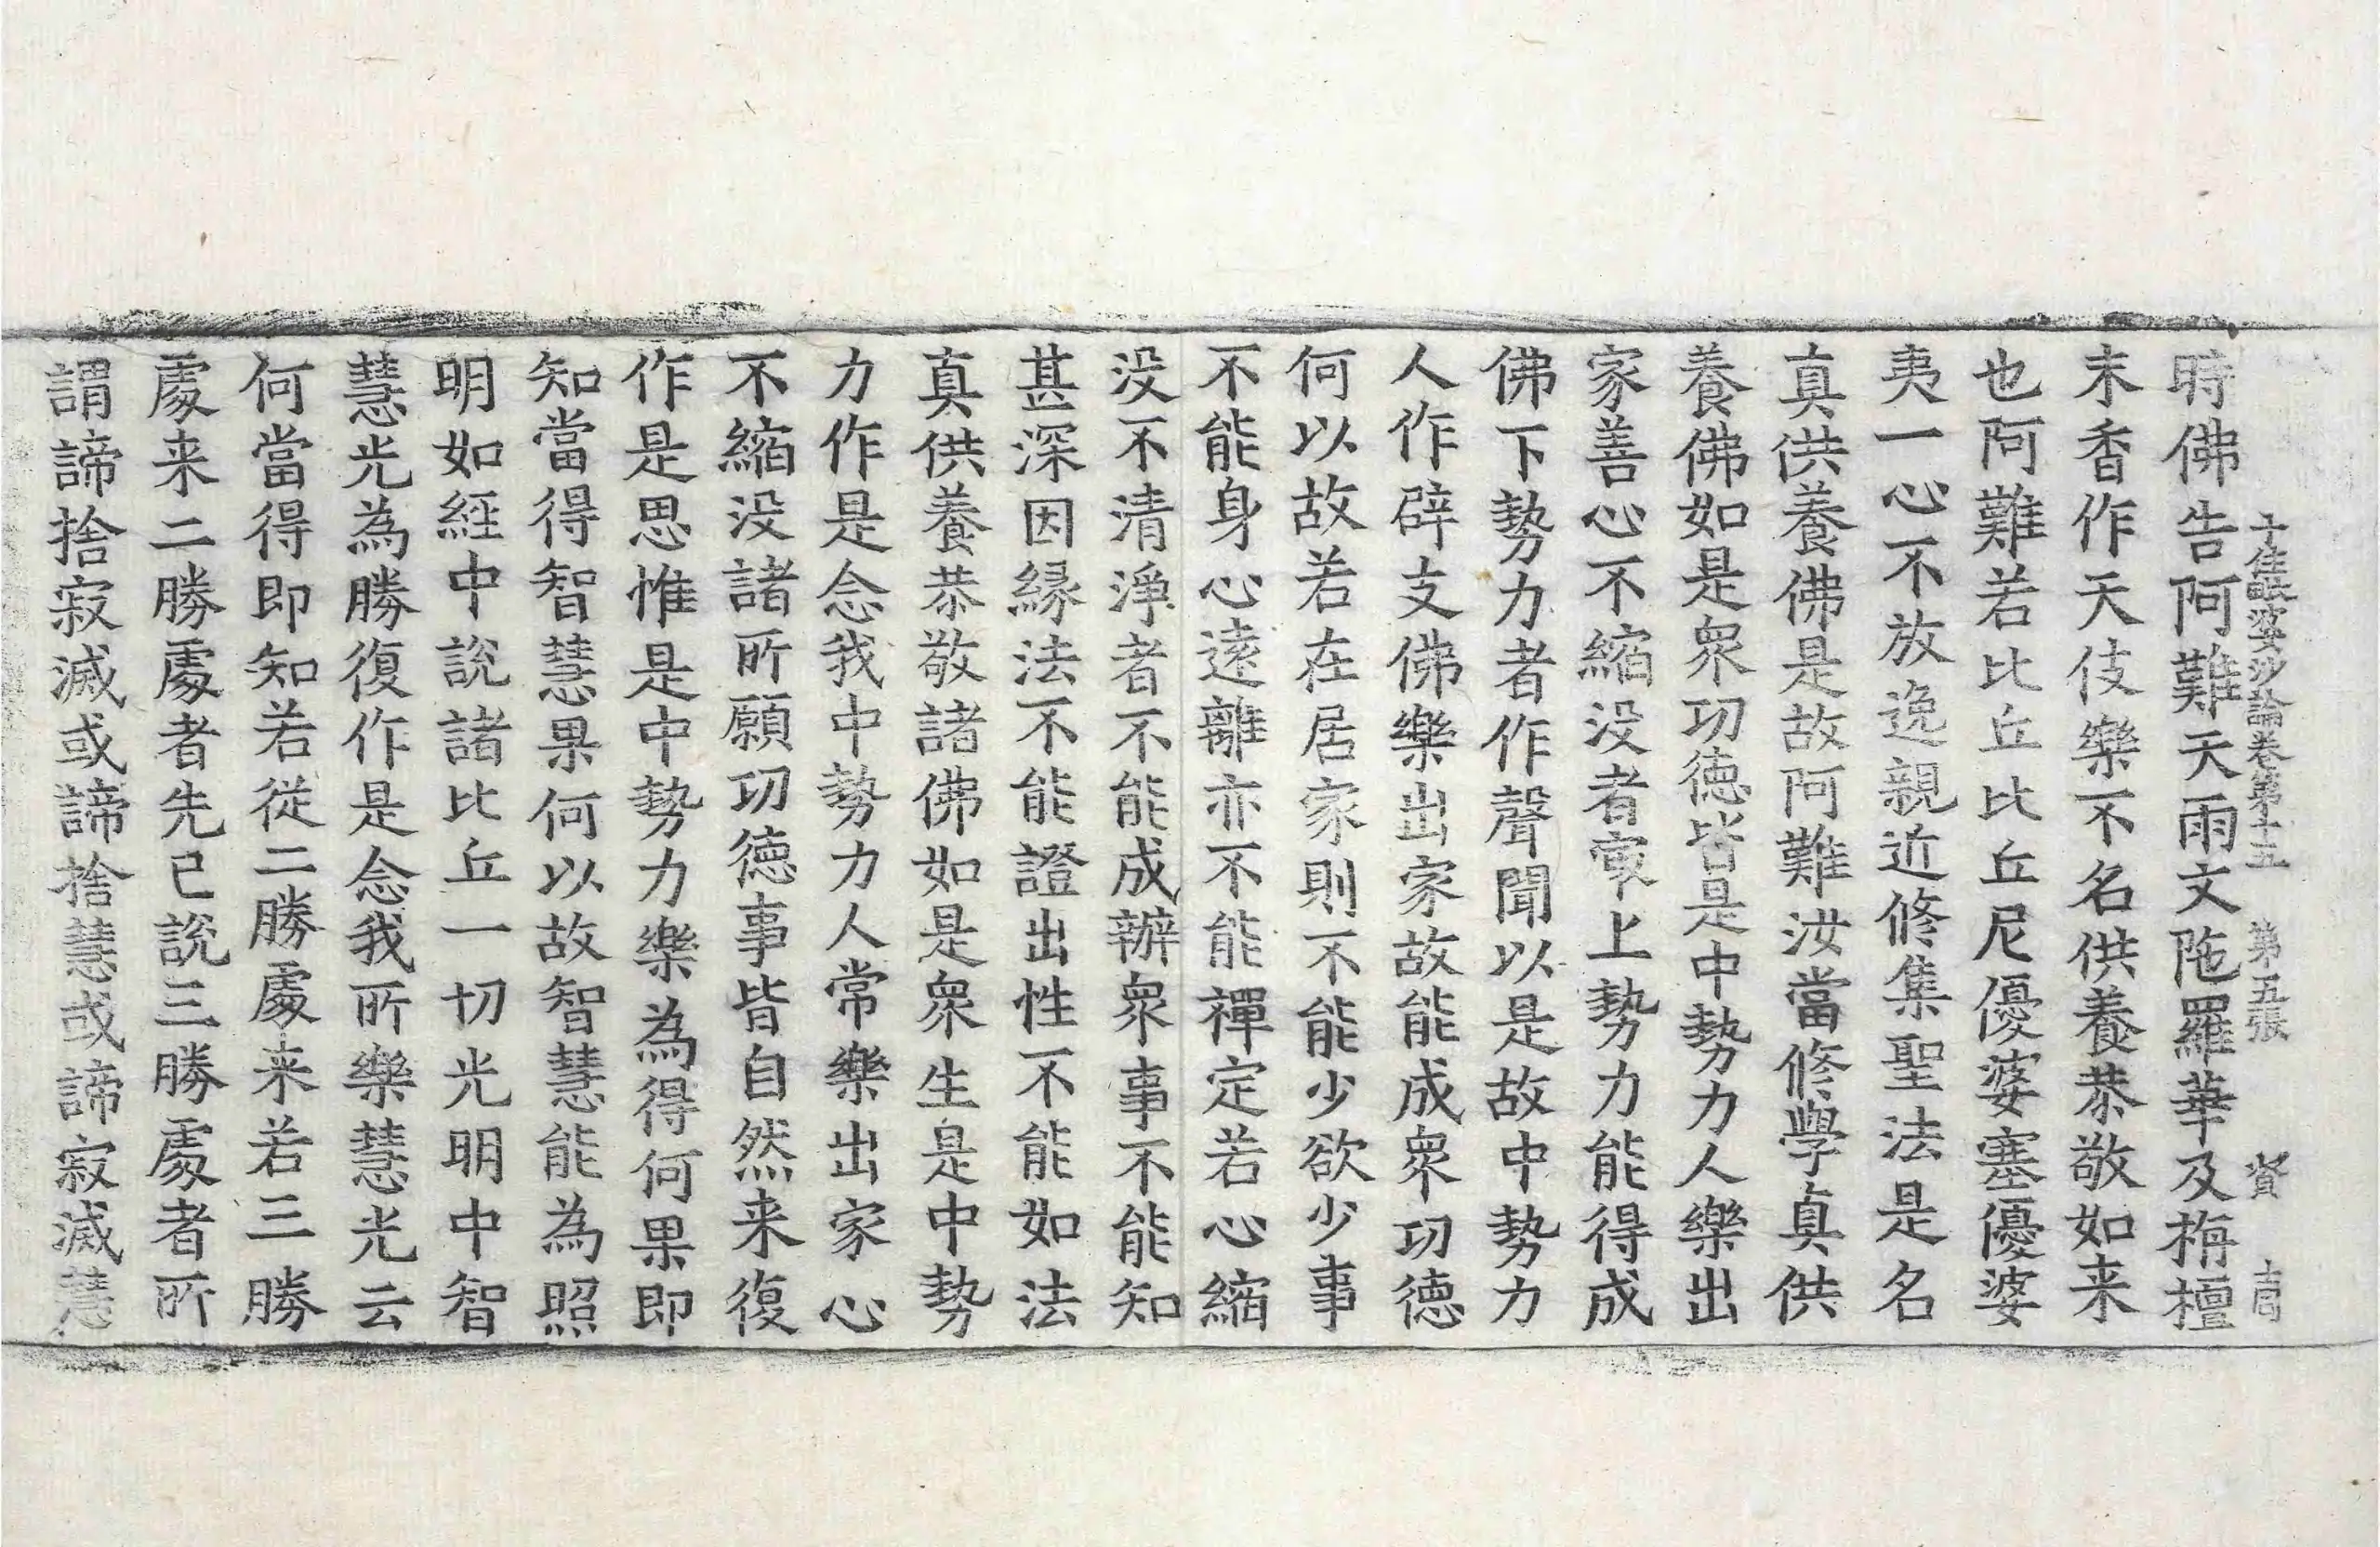 十住毗婆沙論卷第十五 第五張 賢
時佛告阿難天雨文陁羅華及栴檀
末香作天伎樂不名供養恭敬如来
也阿難若比丘比丘尼優婆塞優婆
夷一心不放逸親近修集聖法是名
真供養佛是故阿難汝當修學真供
養佛如是眾功德皆是中勢力人樂出
家善心不縮没者㝡上勢力能得成
佛下勢力者作聲聞以是故中勢力
人作辟支佛樂出家故能成眾功德
何以故若在居家則不能少欲少事
不能身心遠離亦不能禪定若心縮
没不清淨者不能成辦眾事不能知
甚深因緣法不能證出性不能如法
真供養恭敬諸佛如是眾生是中勢
力作是念我中勢力人常樂出家心
不縮没諸所願功德事皆自然来復
作是思惟是中勢力樂為得何果即
知當得智慧果何以故智慧能為照
明如經中說諸比丘一切光明中智
慧光為勝復作是念我所樂慧光云
何當得即知若從二勝處来若三勝
處来二勝處者先已說三勝處者所
謂諦捨寂滅或諦捨慧或諦寂滅慧